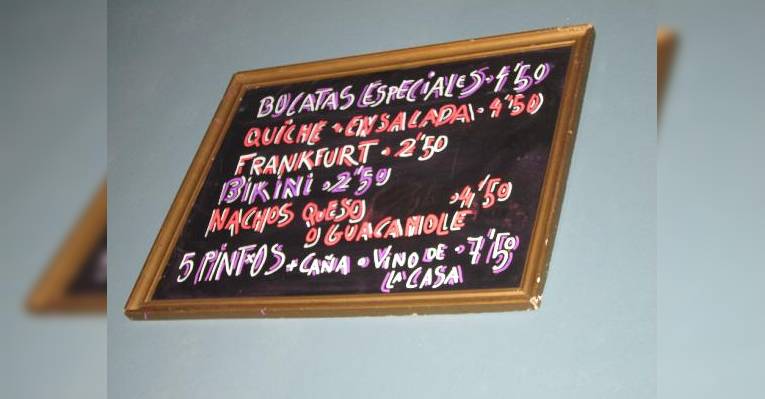 BOCATAS ESPECIALES · 4'50
QUICHE + ENSALADA · 4'50
FRANKFURT · 2'50
BIKINI · 2'50
NACHOS QUESO · 4'50
O GUACAMOLE
5 PINTXOS + CAÑA O VINO DE · 7'50
LA CASA